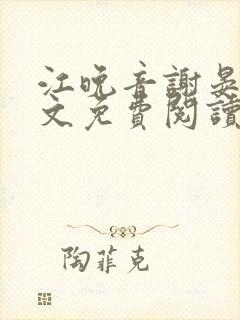 江晚音謝晏
文免費閱讀
陶菲克